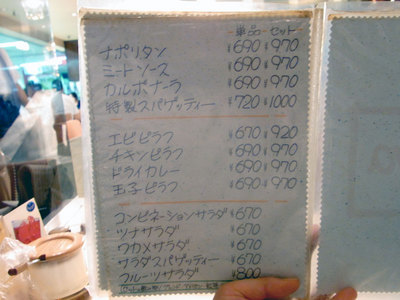 単品 セット
ナポリタン ¥690 ¥970
ミートソース ¥690 ¥970
カルボナーラ ¥690 ¥970
特製スパゲッティー ¥720 ¥1000
エビピラフ ¥670 ¥920
チキンピラフ ¥690 ¥970
ドライカレー ¥690 ¥970
玉子ピラフ ¥690 ¥970
コンビネーションサラダ ¥670
ツナサラダ ¥670
ワカメサラダ ¥670
サラダスパゲッティー ¥670
フルーツサラダ ¥800